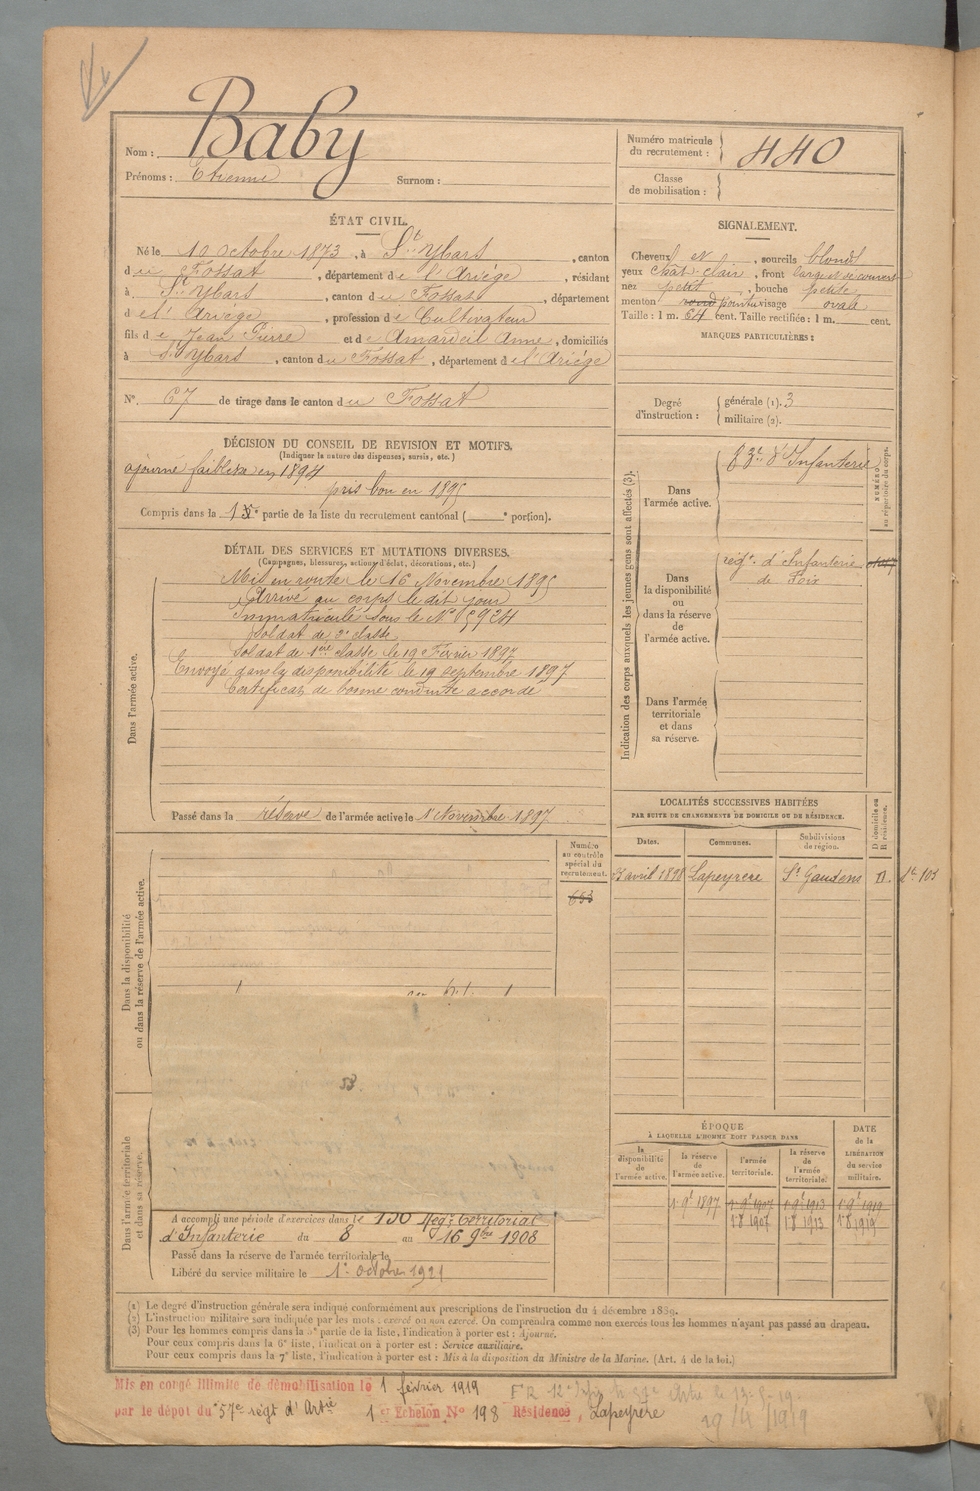 Baby
Nom :
Prénoms : Etienne Surnom :
Numéro matricule du recrutement : 440
Classe de mobilisation :
ÉTAT CIVIL.
Né le 10 Octobre 1873, à St Ybars, canton
du Fossat, département de l'Ariège, résidant
à St Ybars, canton du Fossat, département
de l'Ariège, profession de Cultivateur
fils de Jean Pierre et de Amardeil Anne, domiciliés
à St Ybars, canton du Fossat, département de l'Ariège
N°. 67 de tirage dans le canton du Fossat
SIGNALEMENT.
Cheveux N, sourcils blonds
yeux chat. clair, front large et découvert
nez petit, bouche petite
menton rond pointu visage ovale
Taille : 1 m. 64 cent. Taille rectifiée : 1 m. cent.
MARQUES PARTICULIÈRES :
Degré d'instruction : générale (1). 3
militaire (2).
DÉCISION DU CONSEIL DE REVISION ET MOTIFS.
(Indiquer la nature des dispenses, sursis, etc.)
ajourné faiblesse en 1894
pris bon en 1895
Compris dans la 1e partie de la liste du recrutement cantonal ( e portion).
DÉTAIL DES SERVICES ET MUTATIONS DIVERSES.
(Campagnes, blessures, actions d'éclat, décorations, etc.)
Dans l'armée active.
Mis en route le 16 Novembre 1895
Arrivé au corps le dit jour
Immatriculé sous le N° 5924
Soldat de 2e classe
Soldat de 1ère classe le 19 Février 1897
Envoyé dans la disponibilité le 19 septembre 1897
Certificat de bonne conduite accordé
Passé dans la réserve de l'armée active le 1 Novembre 1897
Indication des corps auxquels les jeunes gens sont affectés (3).
NUMÉRO au répertoire du corps.
Dans l'armée active.
83e d'Infanterie
Dans la disponibilité ou dans la réserve de l'armée active.
régt. d'Infanterie
de Foix
Dans l'armée territoriale et dans sa réserve.
LOCALITÉS SUCCESSIVES HABITÉES
PAR SUITE DE CHANGEMENTS DE DOMICILE OU DE RÉSIDENCE.
D domicile ou R résidence.
Dates. Communes. Subdivisions de région.
avril 1898 Lapeyrère St Gaudens D.
Dans la disponibilité ou dans la réserve de l'armée active.
Numéro au contrôle spécial du recrutement.
693
Dans l'armée territoriale et dans sa réserve.
A accompli une période d'exercices dans le 130 Régt territorial
d'Infanterie du 8 au 16 9bre 1908
Passé dans la réserve de l'armée territoriale le
Libéré du service militaire le 1er octobre 1921
ÉPOQUE
À LAQUELLE L'HOMME DOIT PASSER DANS
DATE de la LIBÉRATION du service militaire.
la disponibilité de l'armée active. la réserve de l'armée active. l'armée territoriale. la réserve de l'armée territoriale.
1 9e 1897 1 9e 1907 1 9e 1913 1 9e 1919
1 8 1907 1 8 1913 1 8 1919
(1) Le degré d'instruction générale sera indiqué conformément aux prescriptions de l'instruction du 4 décembre 1889.
(2) L'instruction militaire sera indiquée par les mots : exercé ou non exercé. On comprendra comme non exercés tous les hommes n'ayant pas passé au drapeau.
(3) Pour les hommes compris dans la 5e partie de la liste, l'indication à porter est : Ajourné.
Pour ceux compris dans la 6e liste, l'indication à porter est : Service auxiliaire.
Pour ceux compris dans la 7e liste, l'indication à porter est : Mis à la disposition du Ministre de la Marine. (Art. 4 de la loi.)
Mis en congé illimité de démobilisation le 1 février 1919
par le dépot du 57e régt d'Artie 1er Echelon N° 198 Résidence, Lapeyrère